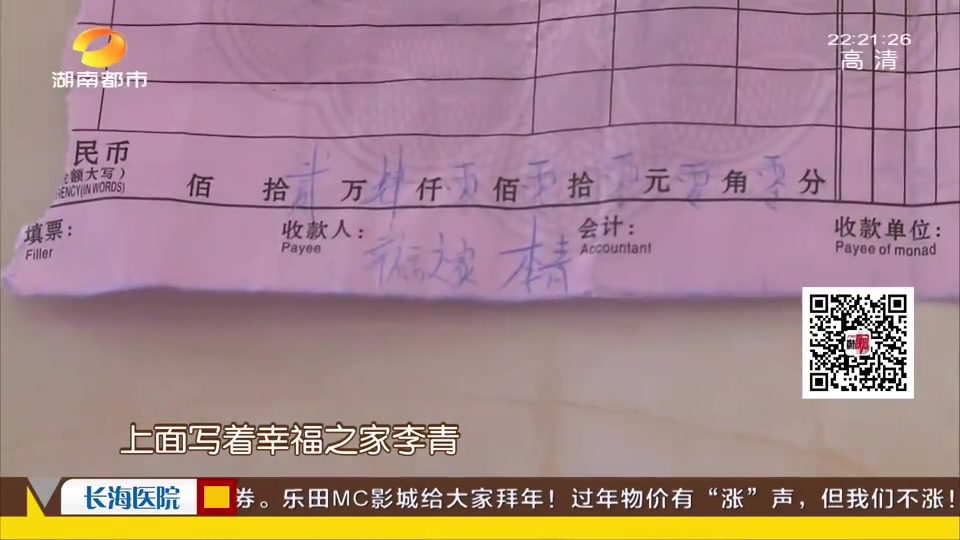 湖南都市
22:21:26
高清
民币
额大写）
RENCY(IN WORDS)
佰 拾贰万肆仟零佰零拾零元零角零分
填票：
Filler
收款人：
Payee
幸福之家 李青
会计：
Accountant
收款单位：
Payee of monad
上面写着幸福之家李青
长海医院
券。乐田MC影城给大家拜年！过年物价有“涨”声，但我们不涨！